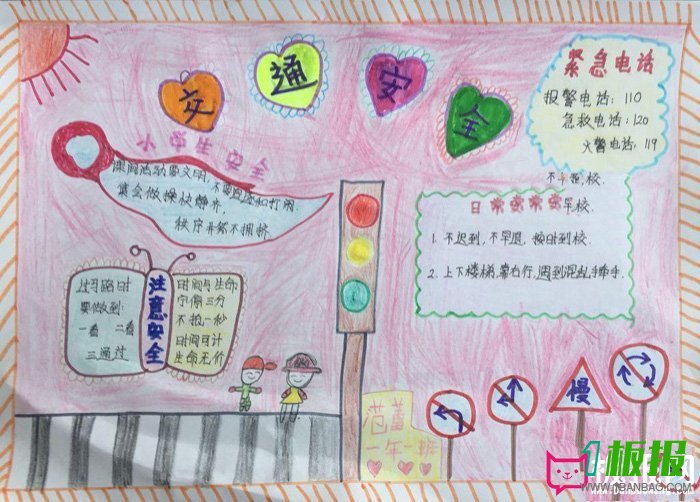 交通安全
紧急电话
报警电话: 110
急救电话: 120
火警电话: 119
小学生安全
课间活动要文明,不要追逐和打闹
集会做操快静齐,
秩序井然不拥挤
日常
1. 不迟到,不早退,按时到校.
2. 上下楼梯,靠右行,
过马路时
要做到:
一看 二看
三通过
注意安全
时间与生命
宁停三分
不抢一秒
时间可计
生命无价
慢
一年一班
1板报
WWW.1BANBAO.COM